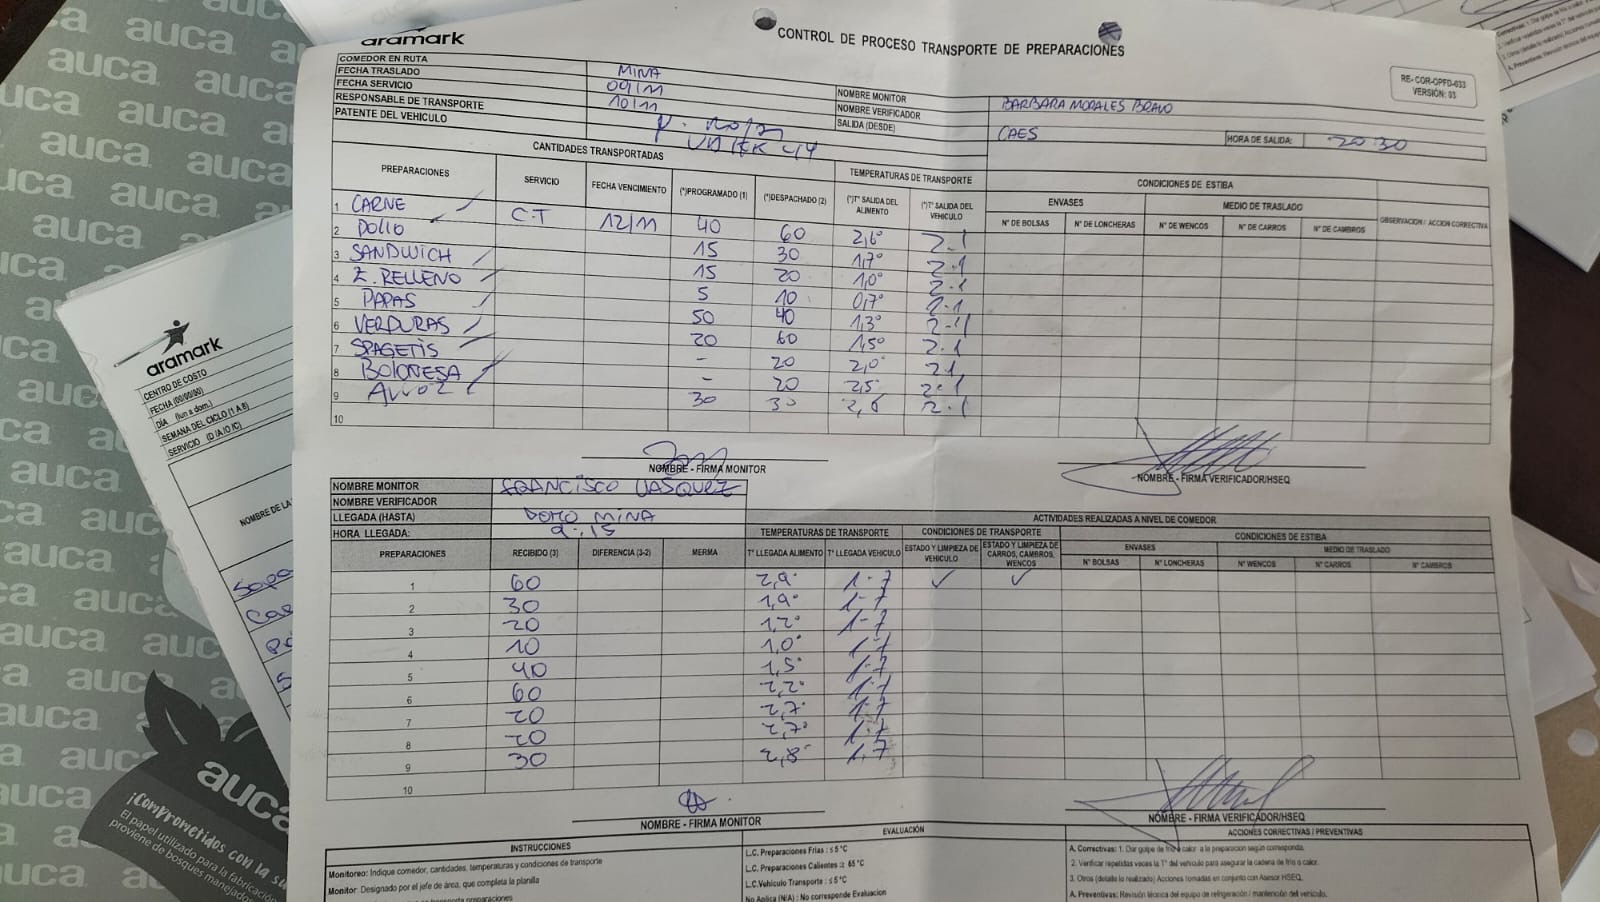 aramark
CONTROL DE PROCESO TRANSPORTE DE PREPARACIONES
RE- COR-OPFD-033
VERSIÓN: 03
COMEDOR EN RUTA MINA
FECHA TRASLADO 09/11
FECHA SERVICIO 10/11
RESPONSABLE DE TRANSPORTE
PATENTE DEL VEHICULO
NOMBRE MONITOR BARBARA MORALES BRAVO
NOMBRE VERIFICADOR
SALIDA (DESDE) CAES HORA DE SALIDA: 20:30
CANTIDADES TRANSPORTADAS TEMPERATURAS DE TRANSPORTE CONDICIONES DE ESTIBA
PREPARACIONES SERVICIO FECHA VENCIMIENTO (*)PROGRAMADO (1) (*)DESPACHADO (2) (*)T° SALIDA DEL ALIMENTO (*)T° SALIDA DEL VEHICULO ENVASES MEDIO DE TRASLADO OBSERVACION / ACCION CORRECTIVA
N° DE BOLSAS N° DE LONCHERAS N° DE WENCOS N° DE CARROS N° DE CAMBROS
1 CARNE C.T 12/11 40 60 2,6° 2.1
2 POLLO 15 30 1,7° 2.1
3 SANDWICH 15 20 1,0° 2.1
4 Z. RELLENO 5 10 0,7° 2.1
5 PAPAS 50 40 1,3° 2.1
6 VERDURAS 20 60 1,5° 2.1
7 SPAGETIS - 20 2,0° 2.1
8 BOLONESA - 20 2,5° 2.1
9 Arroz 30 30 2,6 2.1
10
NOMBRE - FIRMA MONITOR
NOMBRE - FIRMA VERIFICADOR/HSEQ
NOMBRE MONITOR FRANCISCO VASQUEZ
NOMBRE VERIFICADOR
LLEGADA (HASTA) DOMO MINA
HORA LLEGADA: 9:15
ACTIVIDADES REALIZADAS A NIVEL DE COMEDOR
TEMPERATURAS DE TRANSPORTE CONDICIONES DE TRANSPORTE CONDICIONES DE ESTIBA
PREPARACIONES RECIBIDO (3) DIFERENCIA (3-2) MERMA T° LLEGADA ALIMENTO T° LLEGADA VEHICULO ESTADO Y LIMPIEZA DE VEHICULO ESTADO Y LIMPIEZA DE CARROS, CAMBROS, WENCOS ENVASES MEDIO DE TRASLADO
N° BOLSAS N° LONCHERAS N° WENCOS N° CARROS N° CAMBROS
1 60 2,9° 1-7 ✓ ✓
2 30 1,9° 1-7
3 20 1,2° 1-7
4 10 1,0° 1-7
5 40 1,5° 1-7
6 60 2,2° 1-7
7 20 2,7° 1-7
8 20 2,7° 1-7
9 30 2,8° 1,7
10
NOMBRE - FIRMA MONITOR
NOMBRE - FIRMA VERIFICADOR/HSEQ
INSTRUCCIONES EVALUACIÓN ACCIONES CORRECTIVAS / PREVENTIVAS
Monitoreo: Indique comedor, cantidades, temperaturas y condiciones de transporte
Monitor: Designado por el jefe de área, que completa la planilla
L.C. Preparaciones Frias : ≤ 5 °C
L.C. Preparaciones Calientes :≥ 65 °C
L.C. Vehiculo Transporte : ≤ 5 °C
No Aplica (N/A) : No corresponde Evaluacion
A. Correctivas: 1. Dar golpe de frío o calor a la preparación según corresponda.
2. Verificar repetidas veces la T° del vehículo para asegurar la cadena de frío o calor.
3. Otros (detalle lo realizado) Acciones tomadas en conjunto con Asesor HSEQ.
A. Preventivas: Revisión técnica del equipo de refrigeración / mantención del vehículo.
aramark
CENTRO DE COSTO
FECHA (00/00/00)
DÍA (lun a dom.)
SEMANA DEL CICLO (1 A 8)
SERVICIO (D /A /O /C)
NOMBRE DE LA
auca
¡Comprometidos con la su
El papel utilizado para la fabricación
proviene de bosques manejados